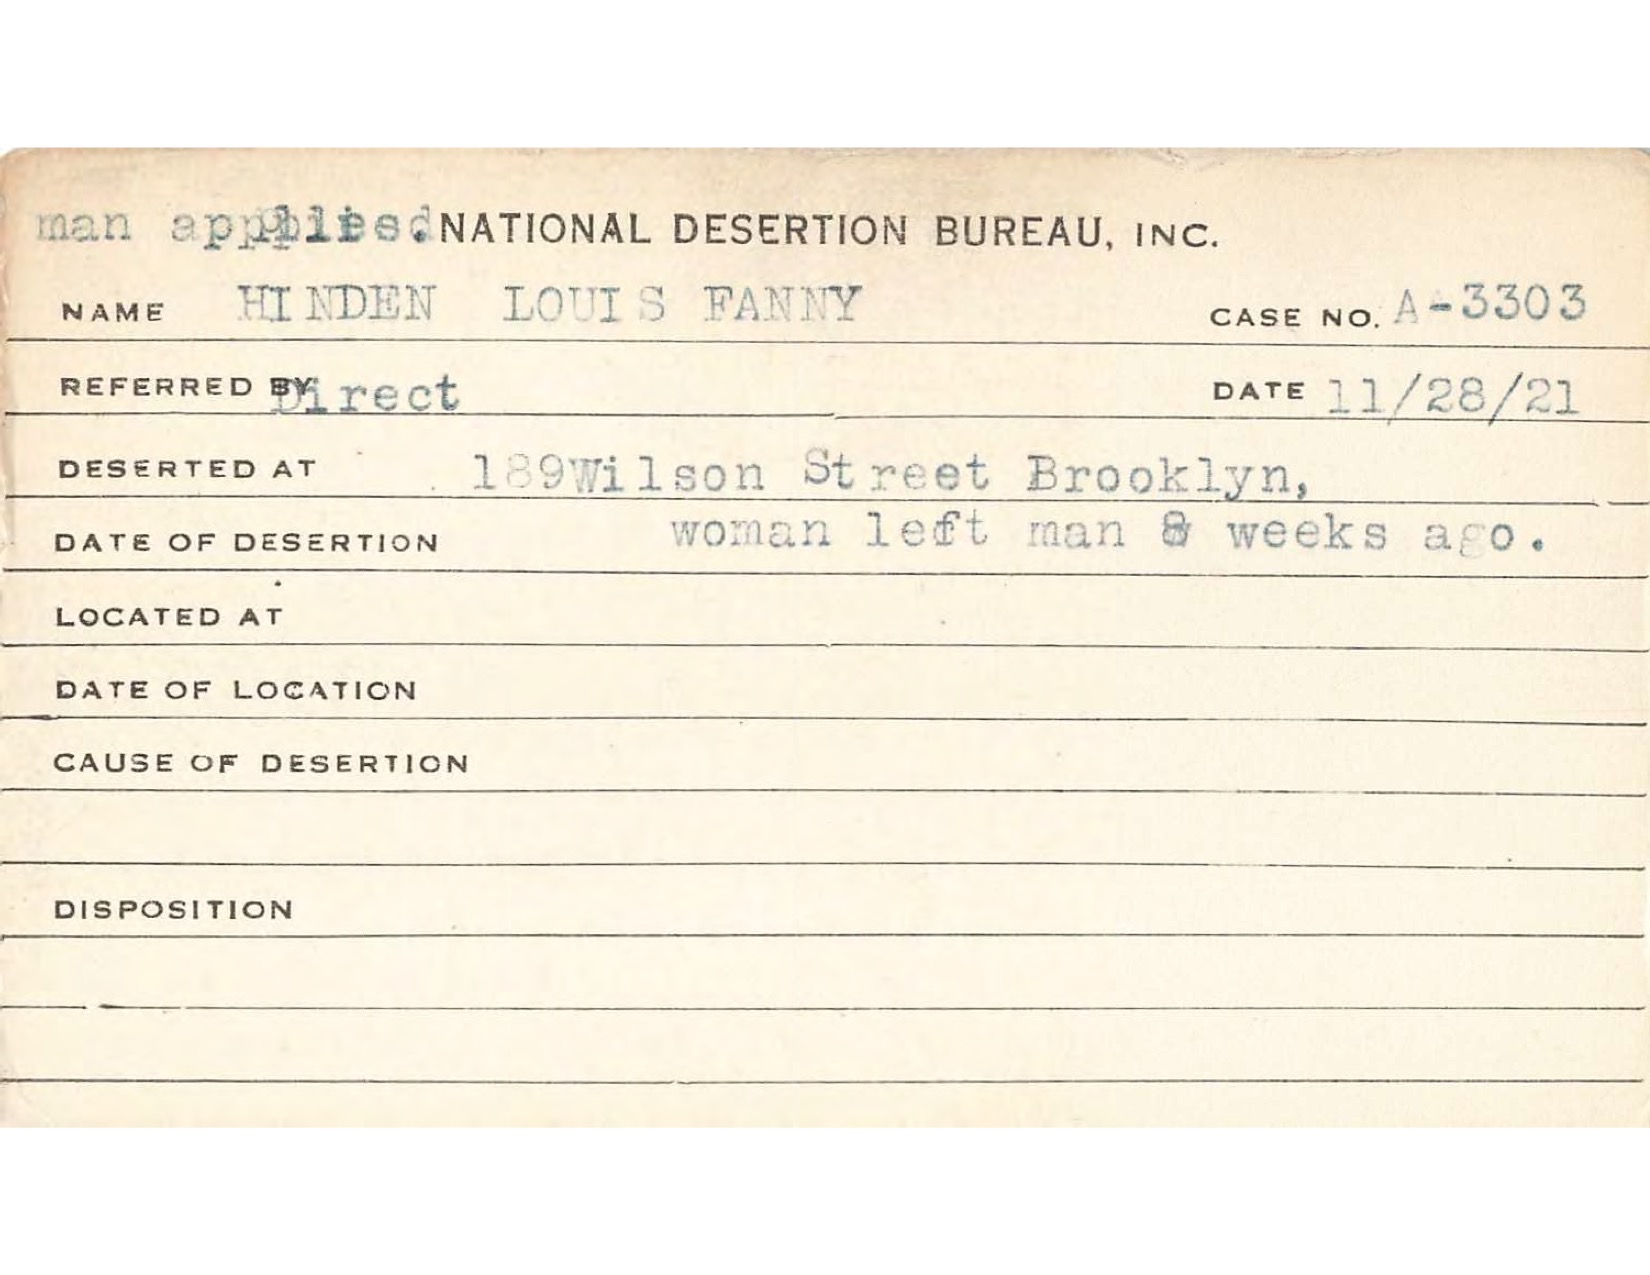 man applied. NATIONAL DESERTION BUREAU, INC.
NAME HINDEN LOUIS FANNY CASE NO. A-3303
REFERRED BY Direct DATE 11/28/21
DESERTED AT 189Wilson Street Brooklyn,
DATE OF DESERTION woman left man 8 weeks ago.
LOCATED AT
DATE OF LOCATION
CAUSE OF DESERTION
DISPOSITION